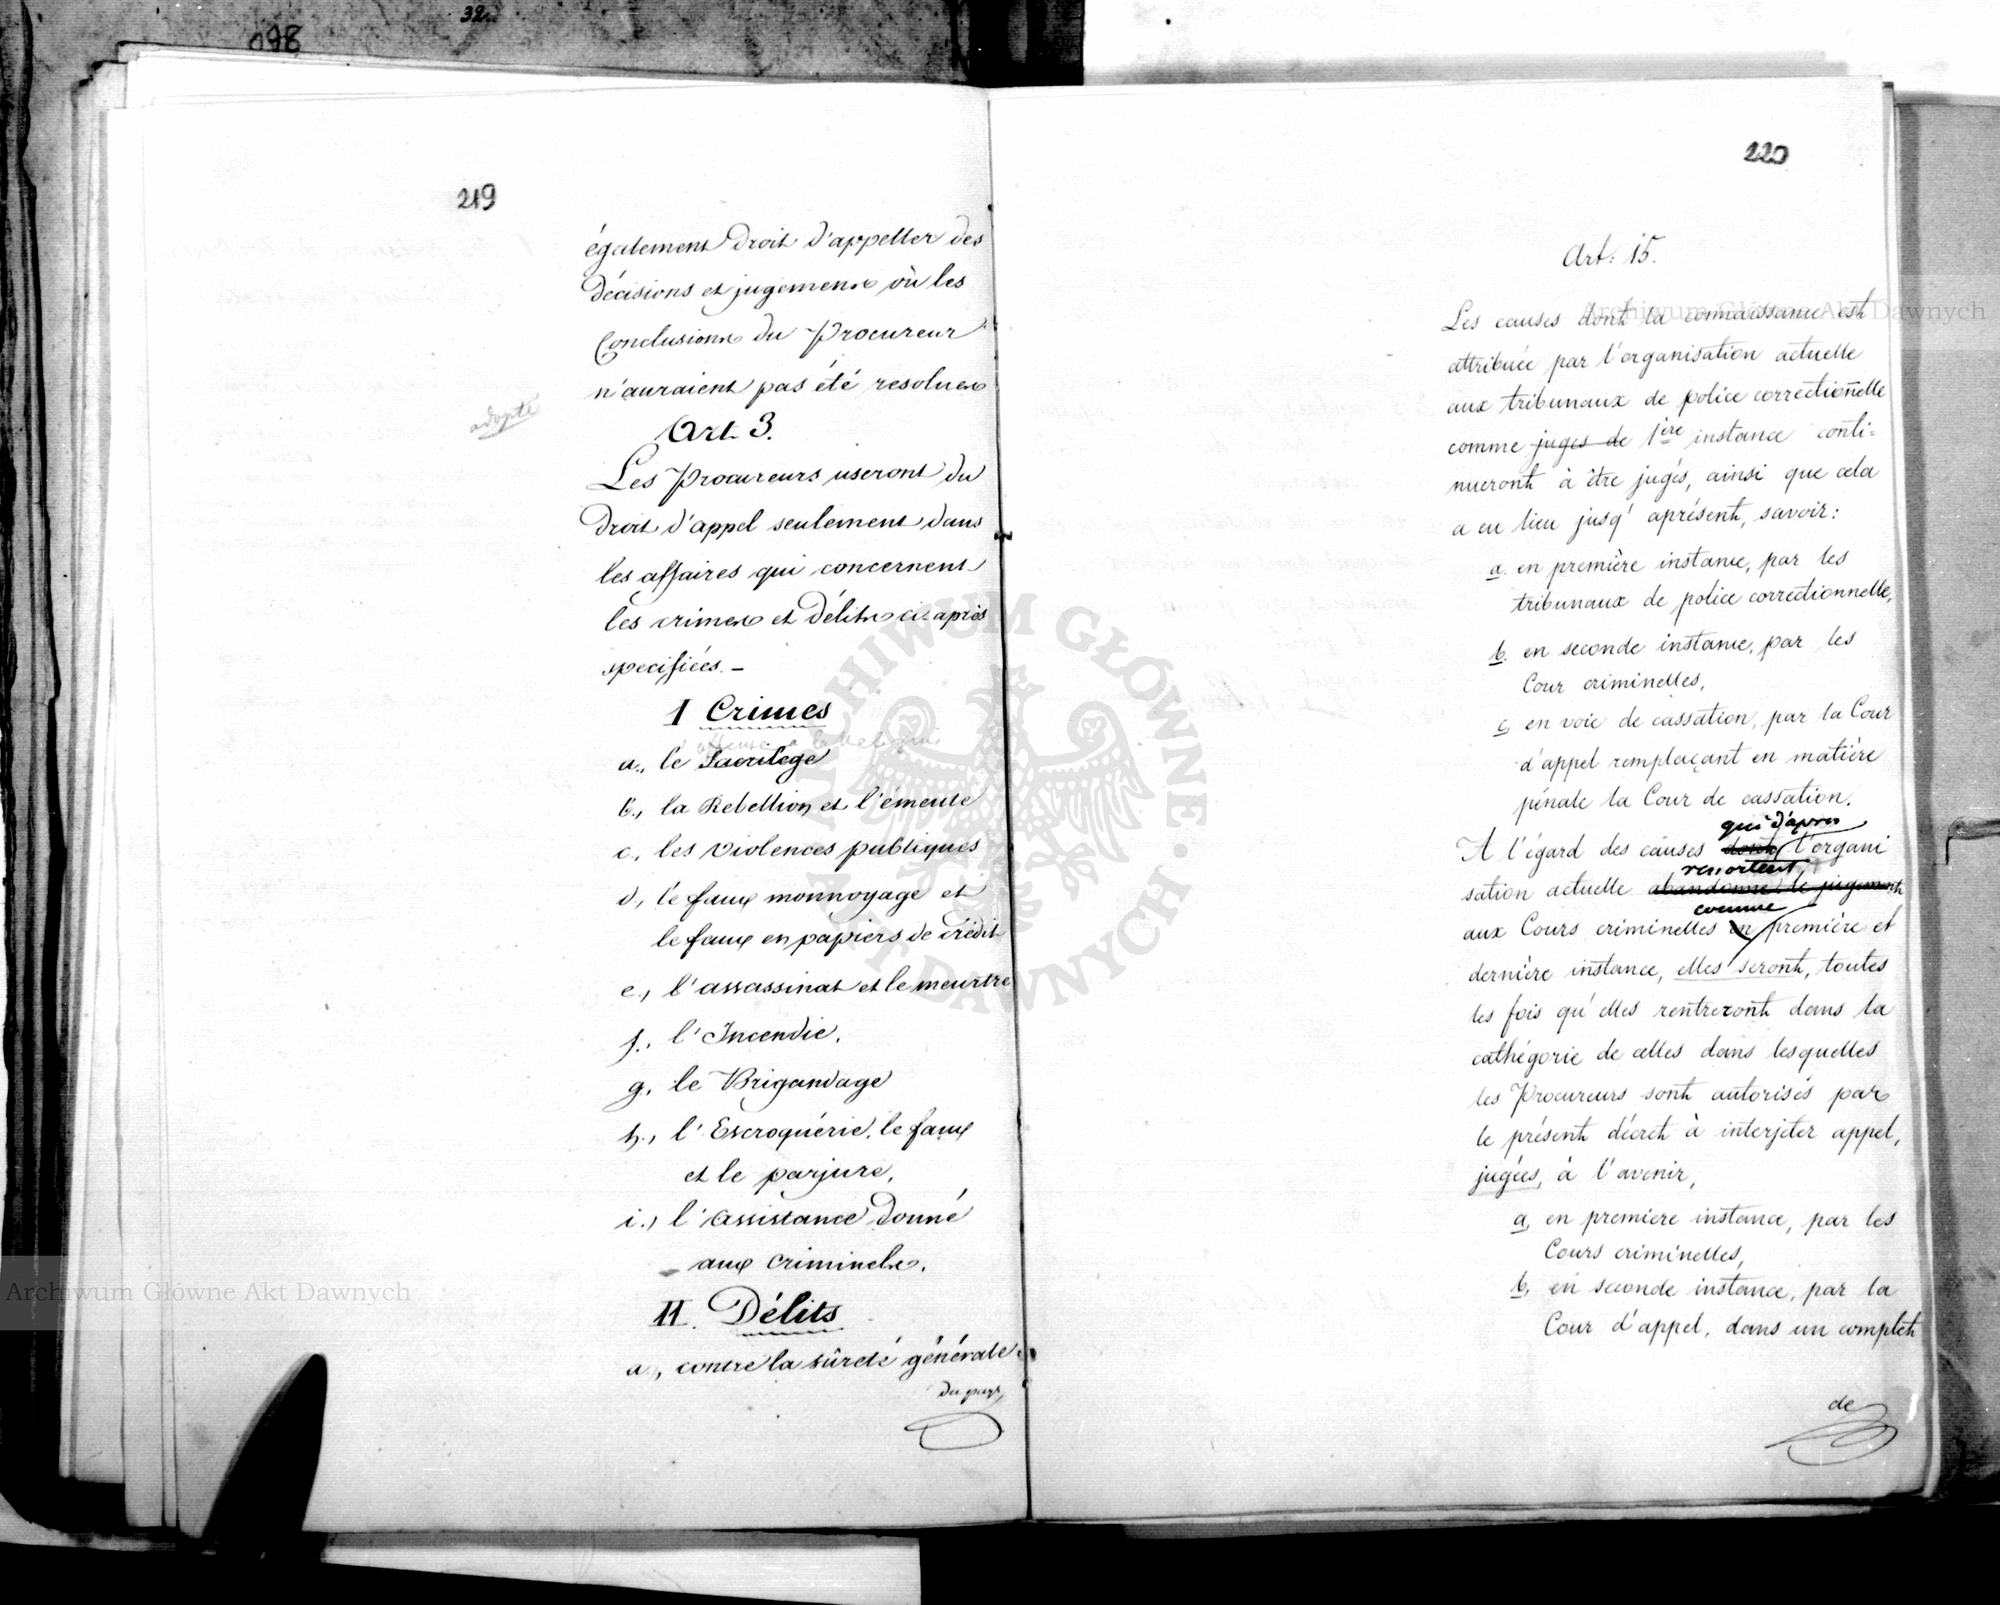 32.
098
219
également droit d'appeller des
décisions et jugemens où les
Conclusions du Procureur
n'auraient pas été resolues
adopté
Art. 3.
Les Procureurs useront du
droit d'appel seulement dans
les affaires qui concernent
les crimes et délits ci-après
specifiées. -
I Crimes
a., le Sacrilège
b., la Rebellion et l'émeute
c., les violences publiques
d., le faux monnoyage et
le faux en papiers de crédit
e., l'assassinat et le meurtre
f., l'Incendie,
g., le Brigandage
h., l'Escroquérie, le faux
et le parjure,
i., l'assistance donné
aux criminels.
II. Délits
a., contre la sûreté générale
du pays,
220
Art: 15.
Les causes dont la connaissance est
attribuée par l'organisation actuelle
aux tribunaux de police correctionnelle
comme juges de 1ère instance conti=
nueront à être jugés, ainsi que cela
a eu lieu jusq' aprésent, savoir:
a. en première instance, par les
tribunaux de police correctionnelle,
b. en seconde instance, par les
Cour criminelles,
c, en voie de cassation, par la Cour
d'appel remplaçant en matière
pénale la Cour de cassation.
qui d'après
A l'égard des causes dont l'organi
ressortent
sation actuelle abandonne le jugement
comme
aux Cours criminelles en première et
dernière instance, elles seront, toutes
les fois qu'elles rentreront dans la
cathégorie de celles dans lesquelles
les Procureurs sont autorisés par
le présent décret à interjeter appel,
jugées, à l'avenir,
a, en premiere instance, par les
Cours criminelles,
b, en seconde instance, par la
Cour d'appel, dans un complet
de
Archiwum Główne Akt Dawnych
Archiwum Główne Akt Dawnych
ARCHIWUM GŁÓWNE · AKT DAWNYCH ·